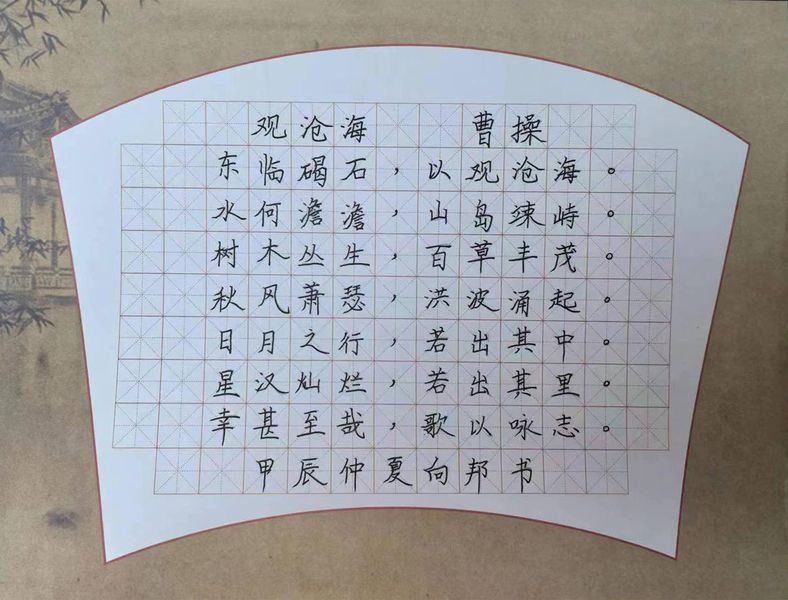 观沧海 曹操
东临碣石，以观沧海。
水何澹澹，山岛竦峙。
树木丛生，百草丰茂。
秋风萧瑟，洪波涌起。
日月之行，若出其中。
星汉灿烂，若出其里。
幸甚至哉，歌以咏志。
甲辰仲夏向邦书